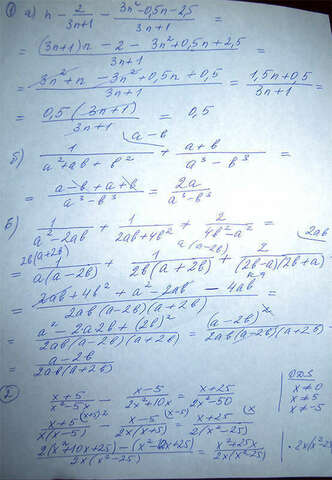 ① а) n - 2/(3n+1) - (3n²-0,5n-2,5)/(3n+1) =
= ((3n+1)n - 2 - 3n²+0,5n+2,5)/(3n+1) =
= (3n²+n - 3n²+0,5n+0,5)/(3n+1) = (1,5n+0,5)/(3n+1) =
= 0,5(3n+1)/(3n+1) = 0,5
б) 1/(a²+ab+b²) (a-b + (a+b)/(a³-b³) =
= (a-b+a+b)/(a³-b³) = 2a/(a³-b³)
в) 1/(a²-2ab) + 1/(2ab+4b²) + 2/(4b²-a²) =
= 2b(a+2b) 1/(a(a-2b)) + a(a-2b) 1/(2b(a+2b)) + 2ab 2/((2b-a)(2b+a)) =
= (2ab+4b²+a²-2ab-4ab)/(2ab(a-2b)(a+2b)) =
= (a²-2a2b+(2b)²)/(2ab(a-2b)(a+2b)) = (a-2b)²/(2ab(a-2b)(a+2b)) =
= (a-2b)/(2ab(a+2b))
② (x+5)/(x²-5x) - (x-5)/(2x²+10x) = (x+25)/(2x²-50)
ОДЗ
x≠0
x≠5
x≠-5
(x+5)/(x(x-5)) (x+5)·2 - (x-5)/(2x(x+5)) (x-5) = (x+25)/(2(x²-25)) (x
(2(x²+10x+25)-(x²-10x+25))/(2x(x²-25)) = (x²+25x)/(2x(x²-25)) | ·2x(x²-25